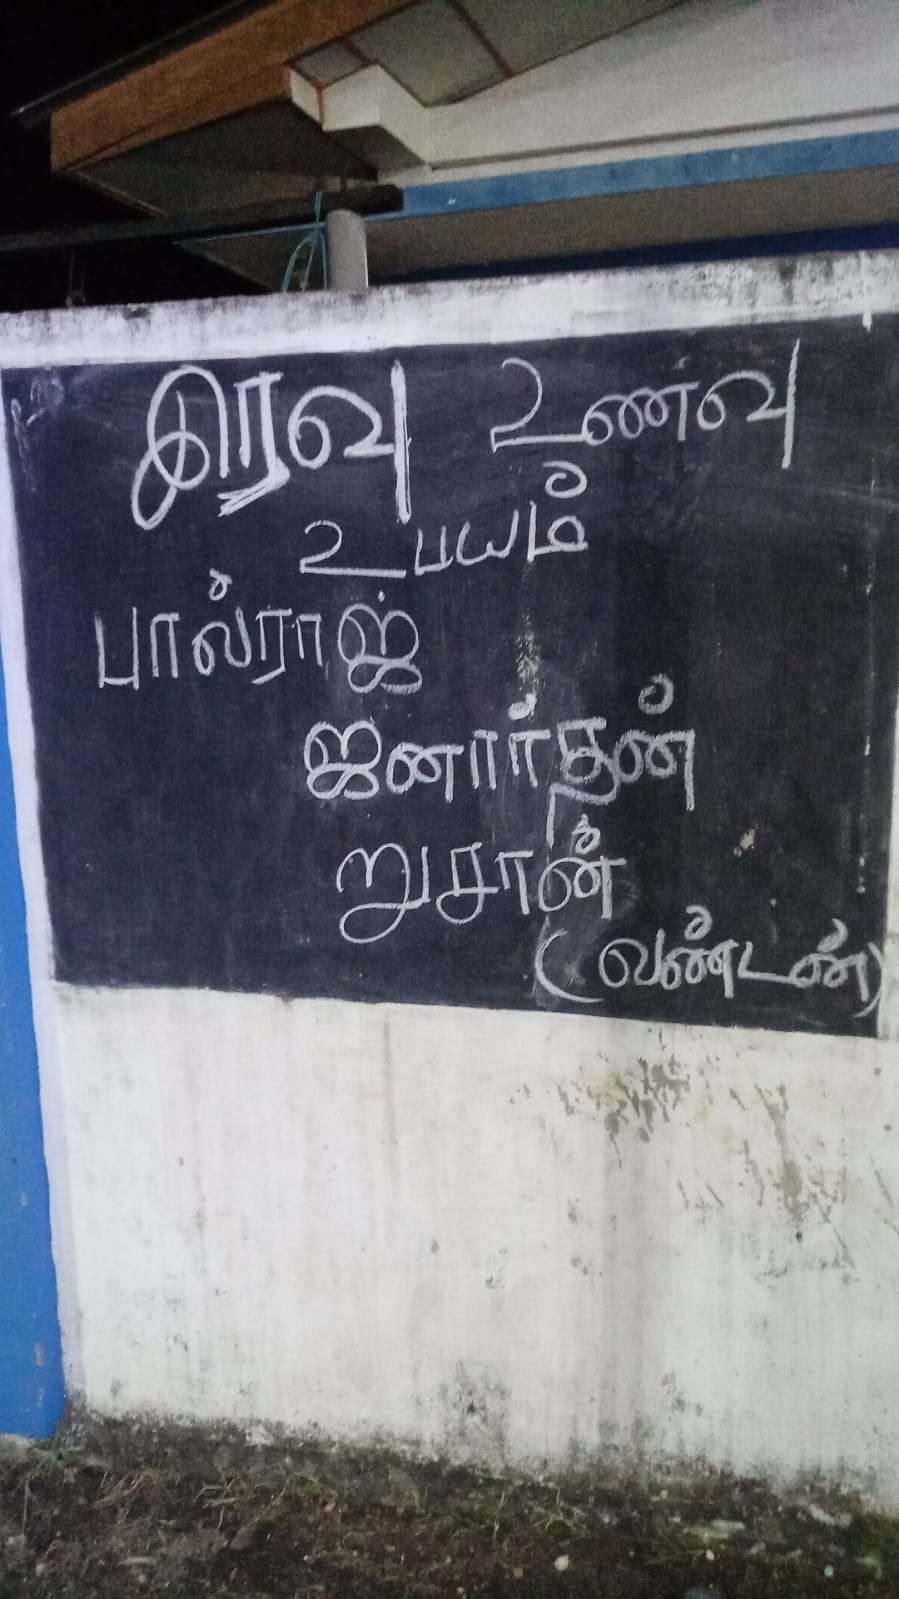 இரவு உணவு
உபயம்
பால்ராஜ்
ஜனார்தன்
றுசான்
(வண்டன்)